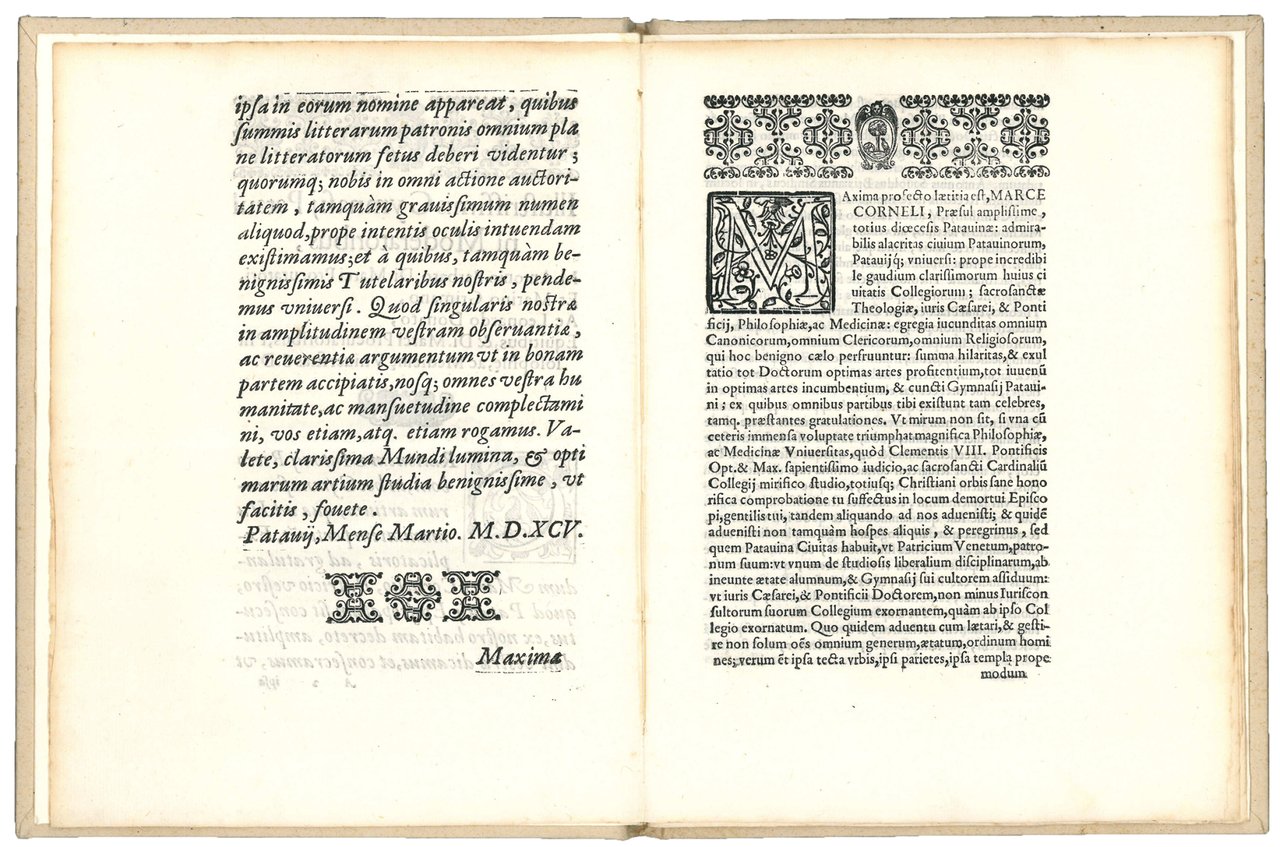 ipſa in eorum nomine appareat, quibus
ſummis litterarum patronis omnium pla
ne litteratorum fetus deberi videntur;
quorumq; nobis in omni actione auctori-
tatem, tamquàm grauiſſimum numen
aliquod, prope intentis oculis intuendam
exiſtimamus; et à quibus, tamquàm be-
nigniſſimis Tutelaribus noſtris, pende-
mus vniuerſi. Quod ſingularis noſtræ
in amplitudinem veſtram obſeruantiæ,
ac reuerentiæ argumentum vt in bonam
partem accipiatis, noſq; omnes veſtra hu
manitate, ac manſuetudine complectami
ni, vos etiam, atq. etiam rogamus. Va-
lete, clariſſima Mundi lumina, & opti
marum artium ſtudia benigniſſime, vt
facitis, fouete.
Patauij, Menſe Martio. M.D.XCV.
Maxima
MAxima profecto lætitia eſt, MARCE
CORNELI, Præſul ampliſſime,
totius diœceſis Patauinæ: admira-
bilis alacritas ciuium Patauinorum,
Patauijq; vniuerſi: prope incredibi
le gaudium clariſſimorum huius ci
uitatis Collegiorum; ſacroſanctæ
Theologiæ, iuris Cæſarei, & Ponti
ficij, Philoſophiæ, ac Medicinæ: egregia iucunditas omnium
Canonicorum, omnium Clericorum, omnium Religioſorum,
qui hoc benigno cælo perfruuntur: ſumma hilaritas, & exul
tatio tot Doctorum optimas artes profitentium, tot iuuenū
in optimas artes incumbentium, & cuncti Gymnaſij Pataui-
ni; ex quibus omnibus partibus tibi exiſtunt tam celebres,
tamq. præſtantes gratulationes. Vt mirum non ſit, ſi vna cū
ceteris immenſa voluptate triumphat magnifica Philoſophiæ,
ac Medicinæ Vniuerſitas, quòd Clementis VIII. Pontificis
Opt. & Max. ſapientiſſimo iudicio, ac ſacroſancti Cardinaliū
Collegij mirifico ſtudio, totiuſq; Chriſtiani orbis ſane hono
rifica comprobatione tu ſuffectus in locum demortui Epiſco
pi, gentilis tui, tandem aliquando ad nos adueniſti; & quidē
adueniſti non tamquàm hoſpes aliquis, & peregrinus, ſed
quem Patauina Ciuitas habuit, vt Patricium Venetum, patro-
num ſuum: vt vnum de ſtudioſis liberalium diſciplinarum, ab
ineunte ætate alumnum, & Gymnaſij ſui cultorem aſſiduum:
vt iuris Cæſarei, & Pontificii Doctorem, non minus Iuriſcon
ſultorum ſuorum Collegium exornantem, quàm ab ipſo Col
legio exornatum. Quo quidem aduentu cum lætari, & geſti-
re non ſolum oēs omnium generum, ætatum, ordinum homi
nes; verum ēt ipſa tecta vrbis, ipſi parietes, ipſa templa prope
modum